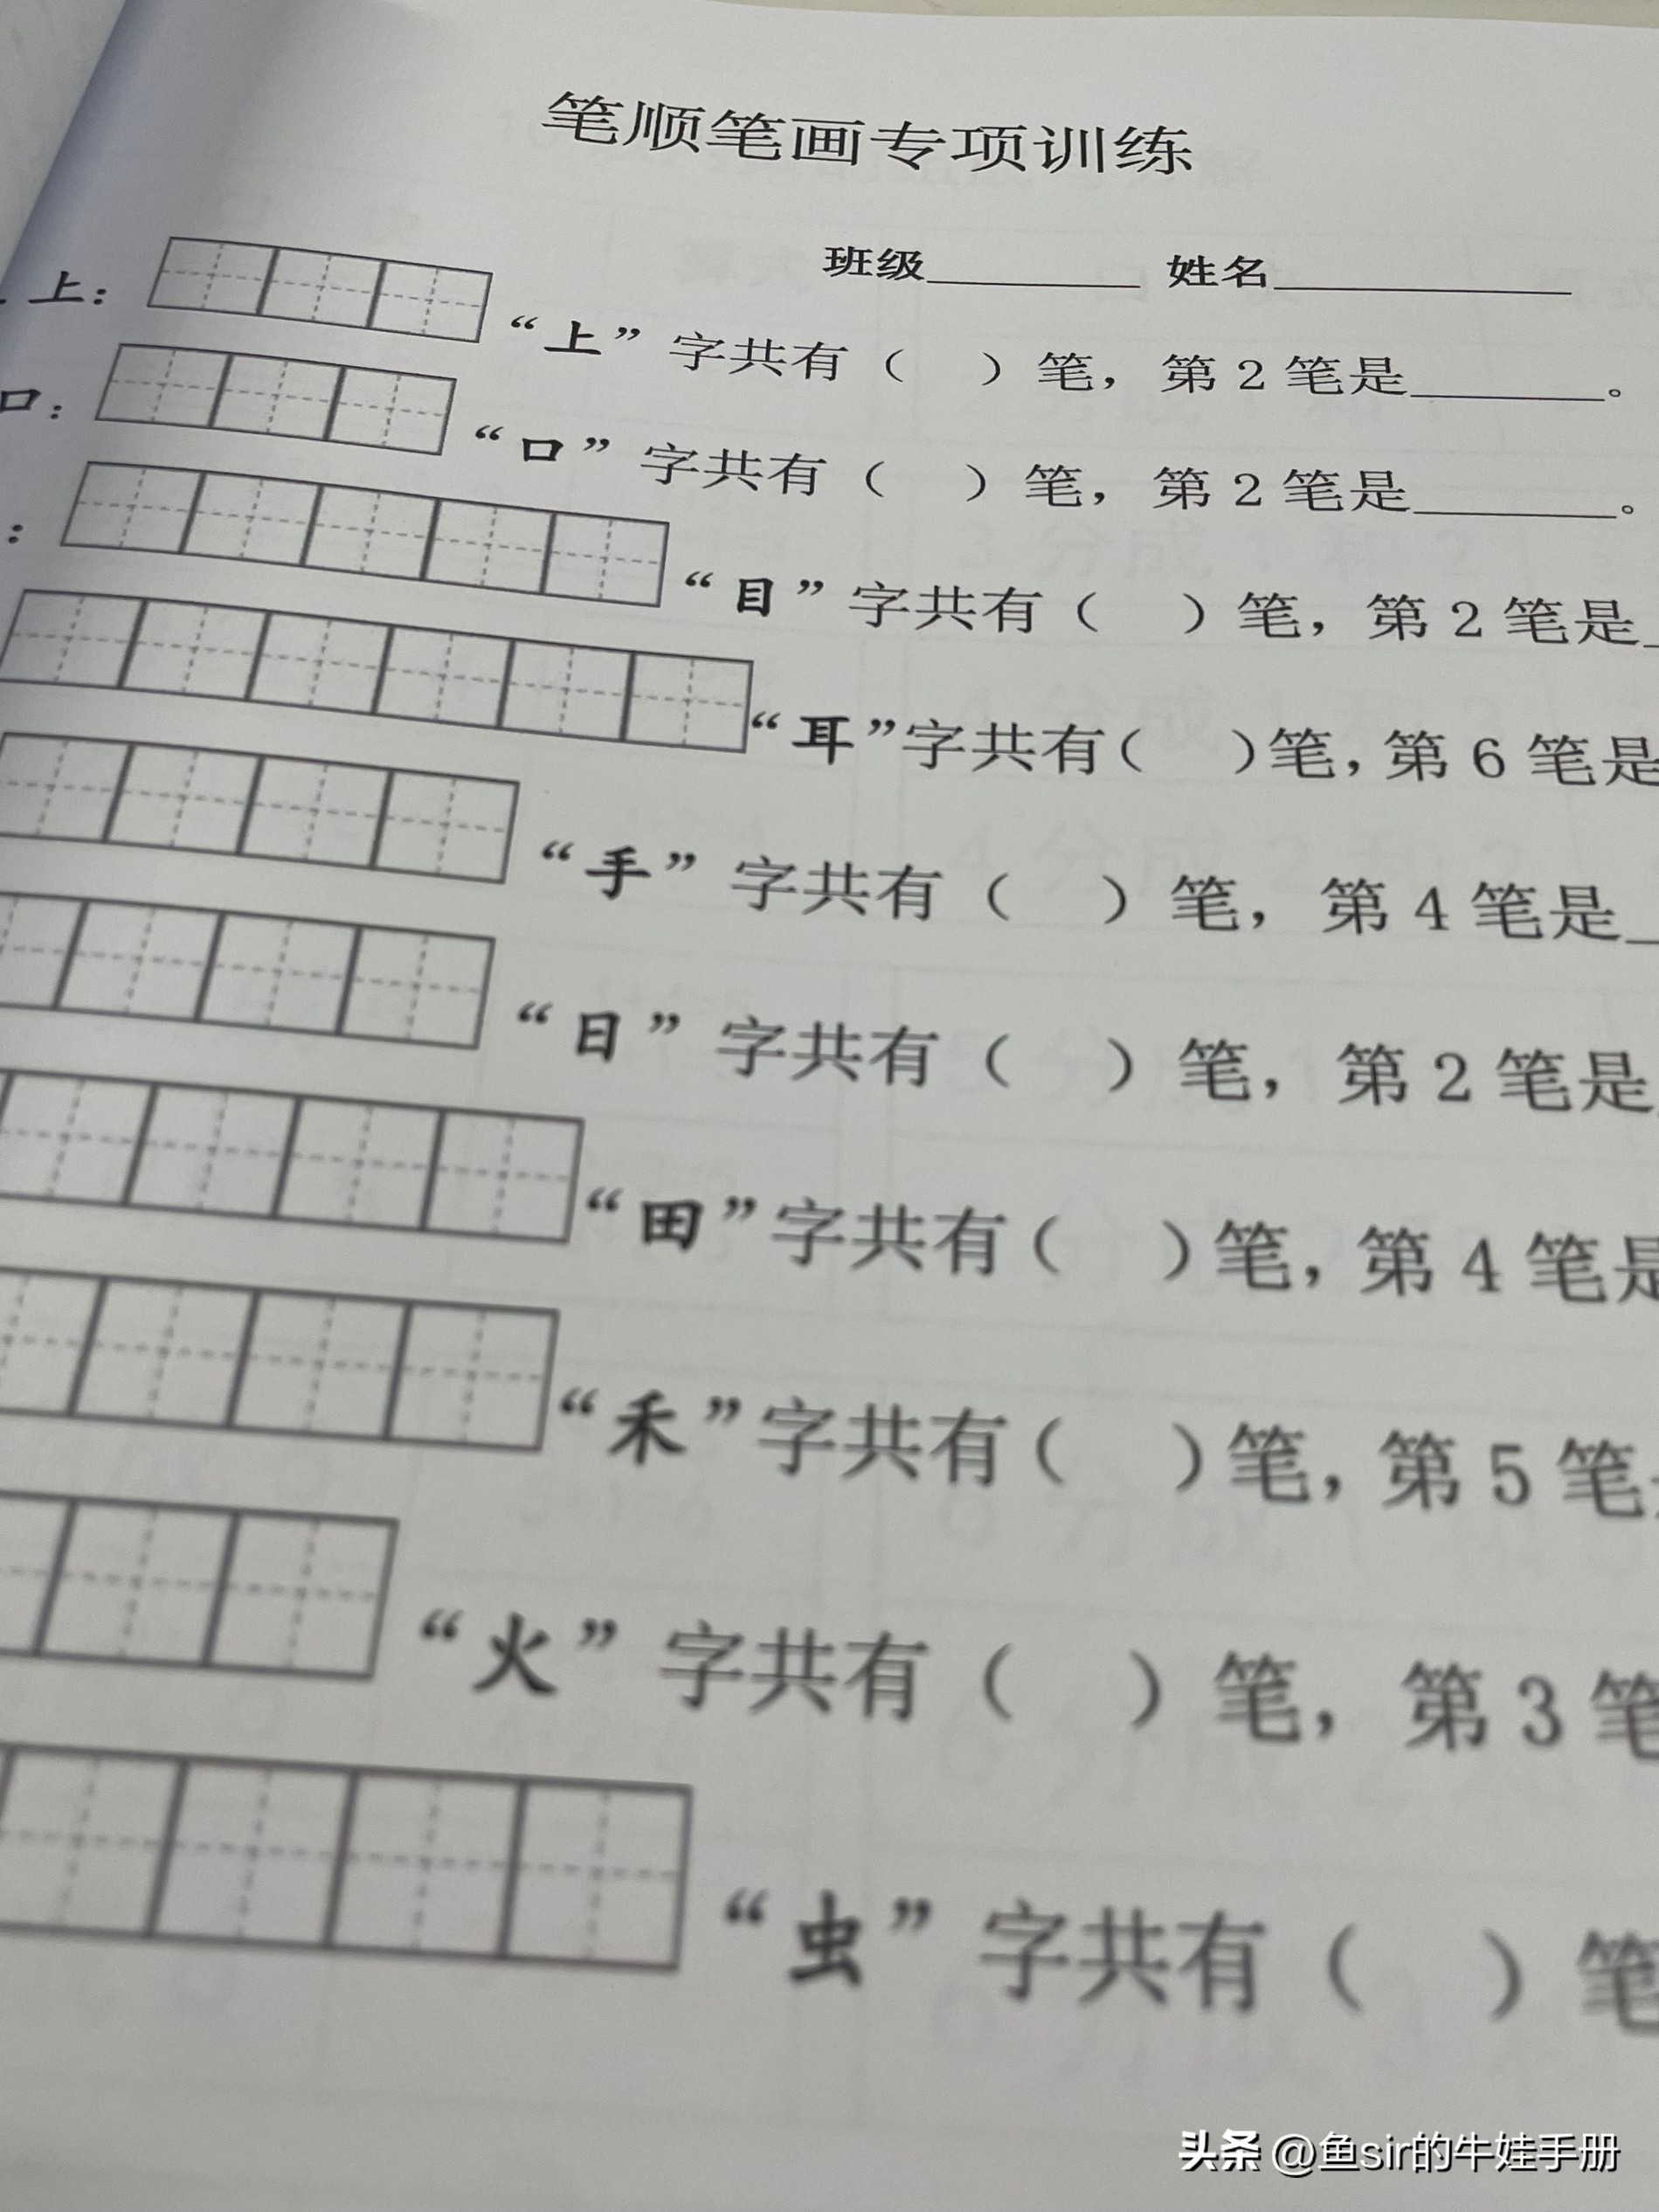 笔顺笔画专项训练
班级________ 姓名___________
上： “上”字共有（ ）笔，第2笔是_______。
口： “口”字共有（ ）笔，第2笔是_______。
： “目”字共有（ ）笔，第2笔是_
“耳”字共有（ ）笔，第6笔是
“手”字共有（ ）笔，第4笔是_
“日”字共有（ ）笔，第2笔是
“田”字共有（ ）笔，第4笔是
“禾”字共有（ ）笔，第5笔是
“火”字共有（ ）笔，第3笔
“虫”字共有（ ）笔
头条 @鱼sir的牛娃手册